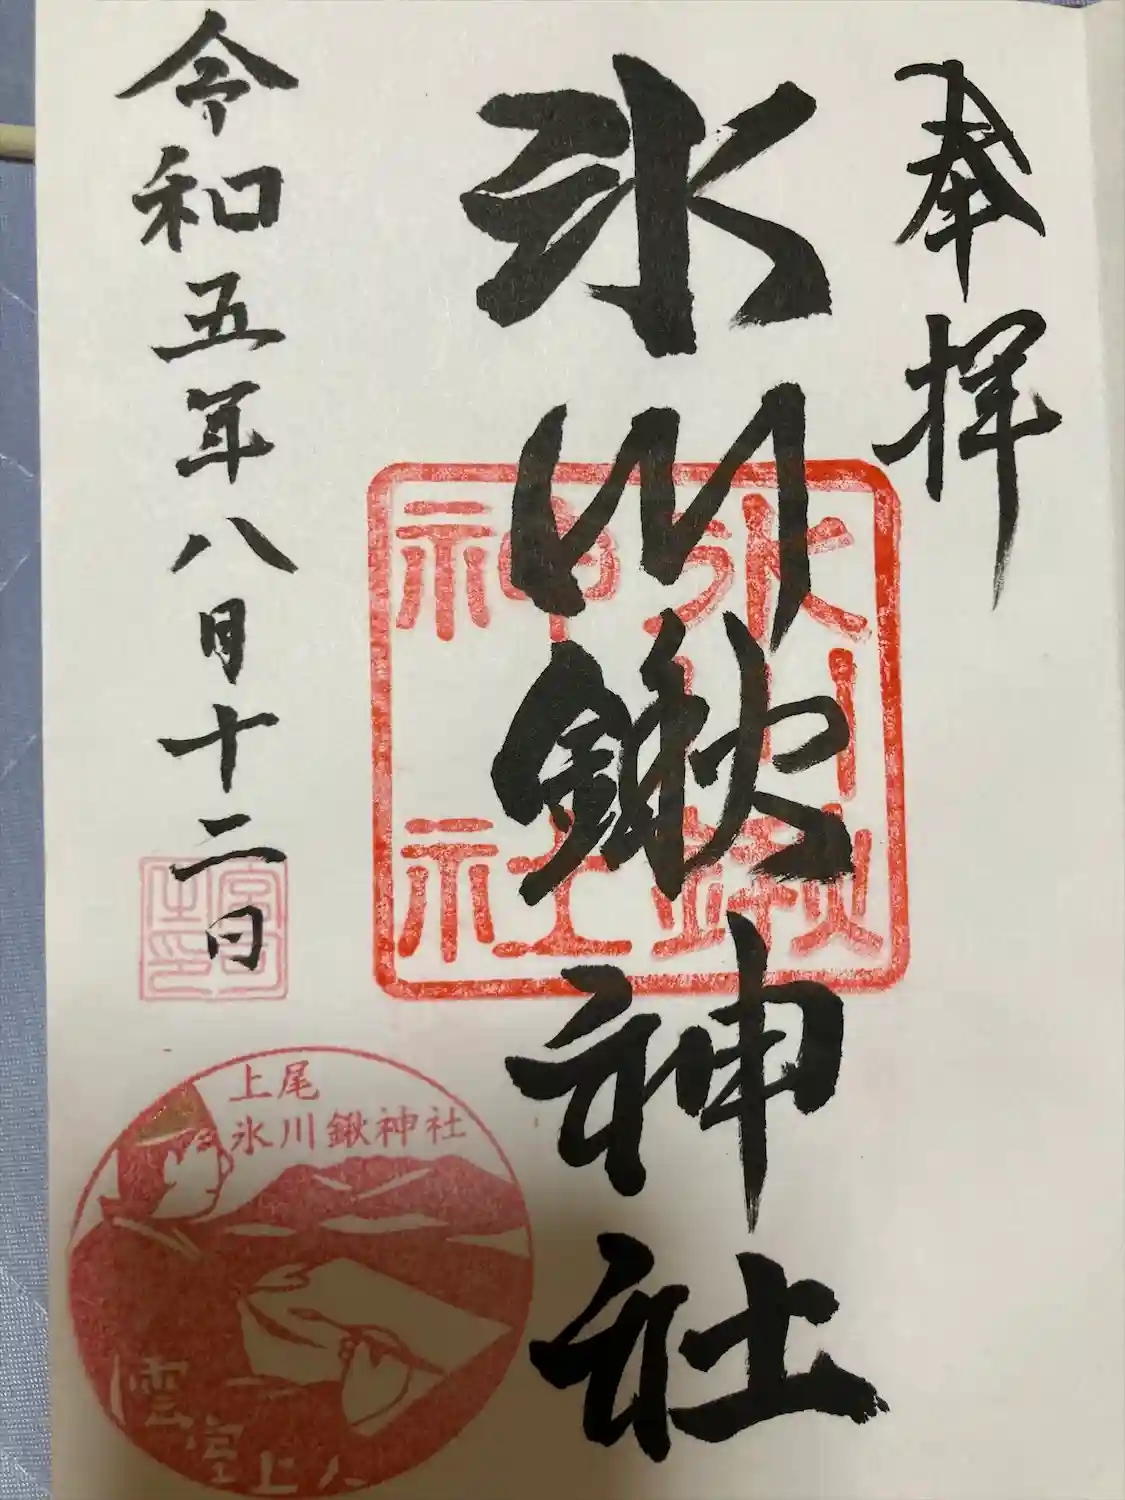 奉拝
氷川鍬神社
氷川鍬
神社
令和五年八月十二日
宮司
之印
上尾
氷川鍬神社
雲室上人